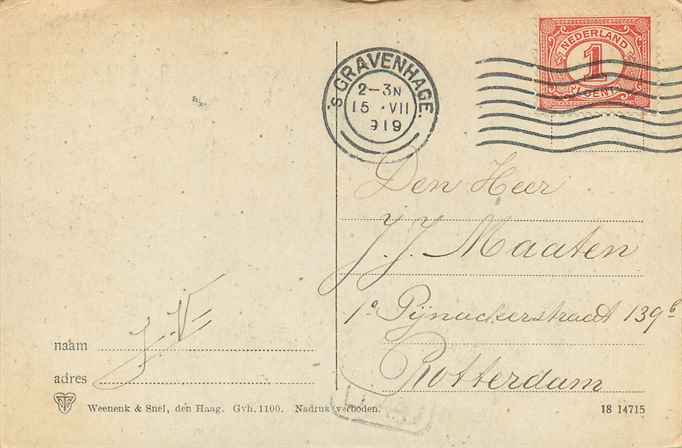 'S GRAVENHAGE.
2-3N
15 .VII
919
NEDERLAND
1
CENT
Den Heer
J. J. Maaten
1e Pijnackerstraat 139b
Rotterdam
naam J. V.
adres
Weenenk & Snel, den Haag. Gvh. 1100. Nadruk verboden.
18 14715